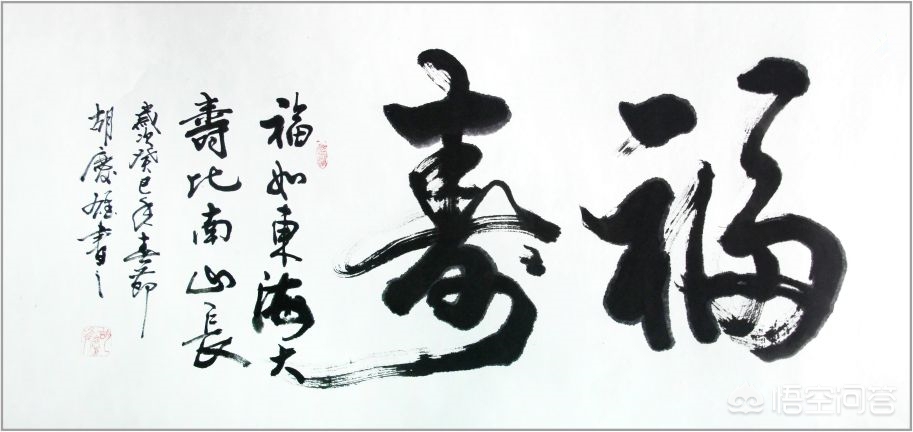 福壽
福如東海大
壽比南山長
歲次癸巳年春節
胡慶雄書之
悟空问答